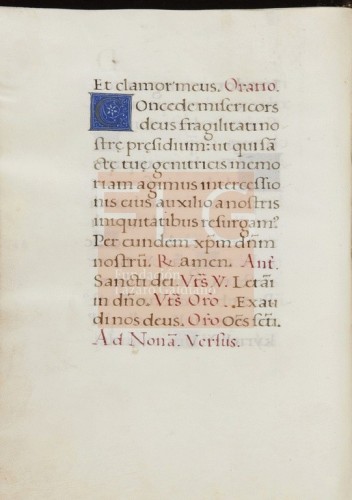 Et clamor meus. Oratio.
Concede misericors
deus fragilitati no
strę pręsidium: ut qui sā
ctę tuę genitricis memo
riam agimus intercessio
nis eius auxilio a nostris
iniquitatibus resurgam?
Per eundem xpm dnm
nostrū. R. amen. Ant.
Sancti dei. Vrs V. Letāi
in dno. Vrs Oro. Exau
di nos deus. Oro Oēs scti.
Ad Nonā. Versus.
FLG
Fundación
Lázaro Galdiano